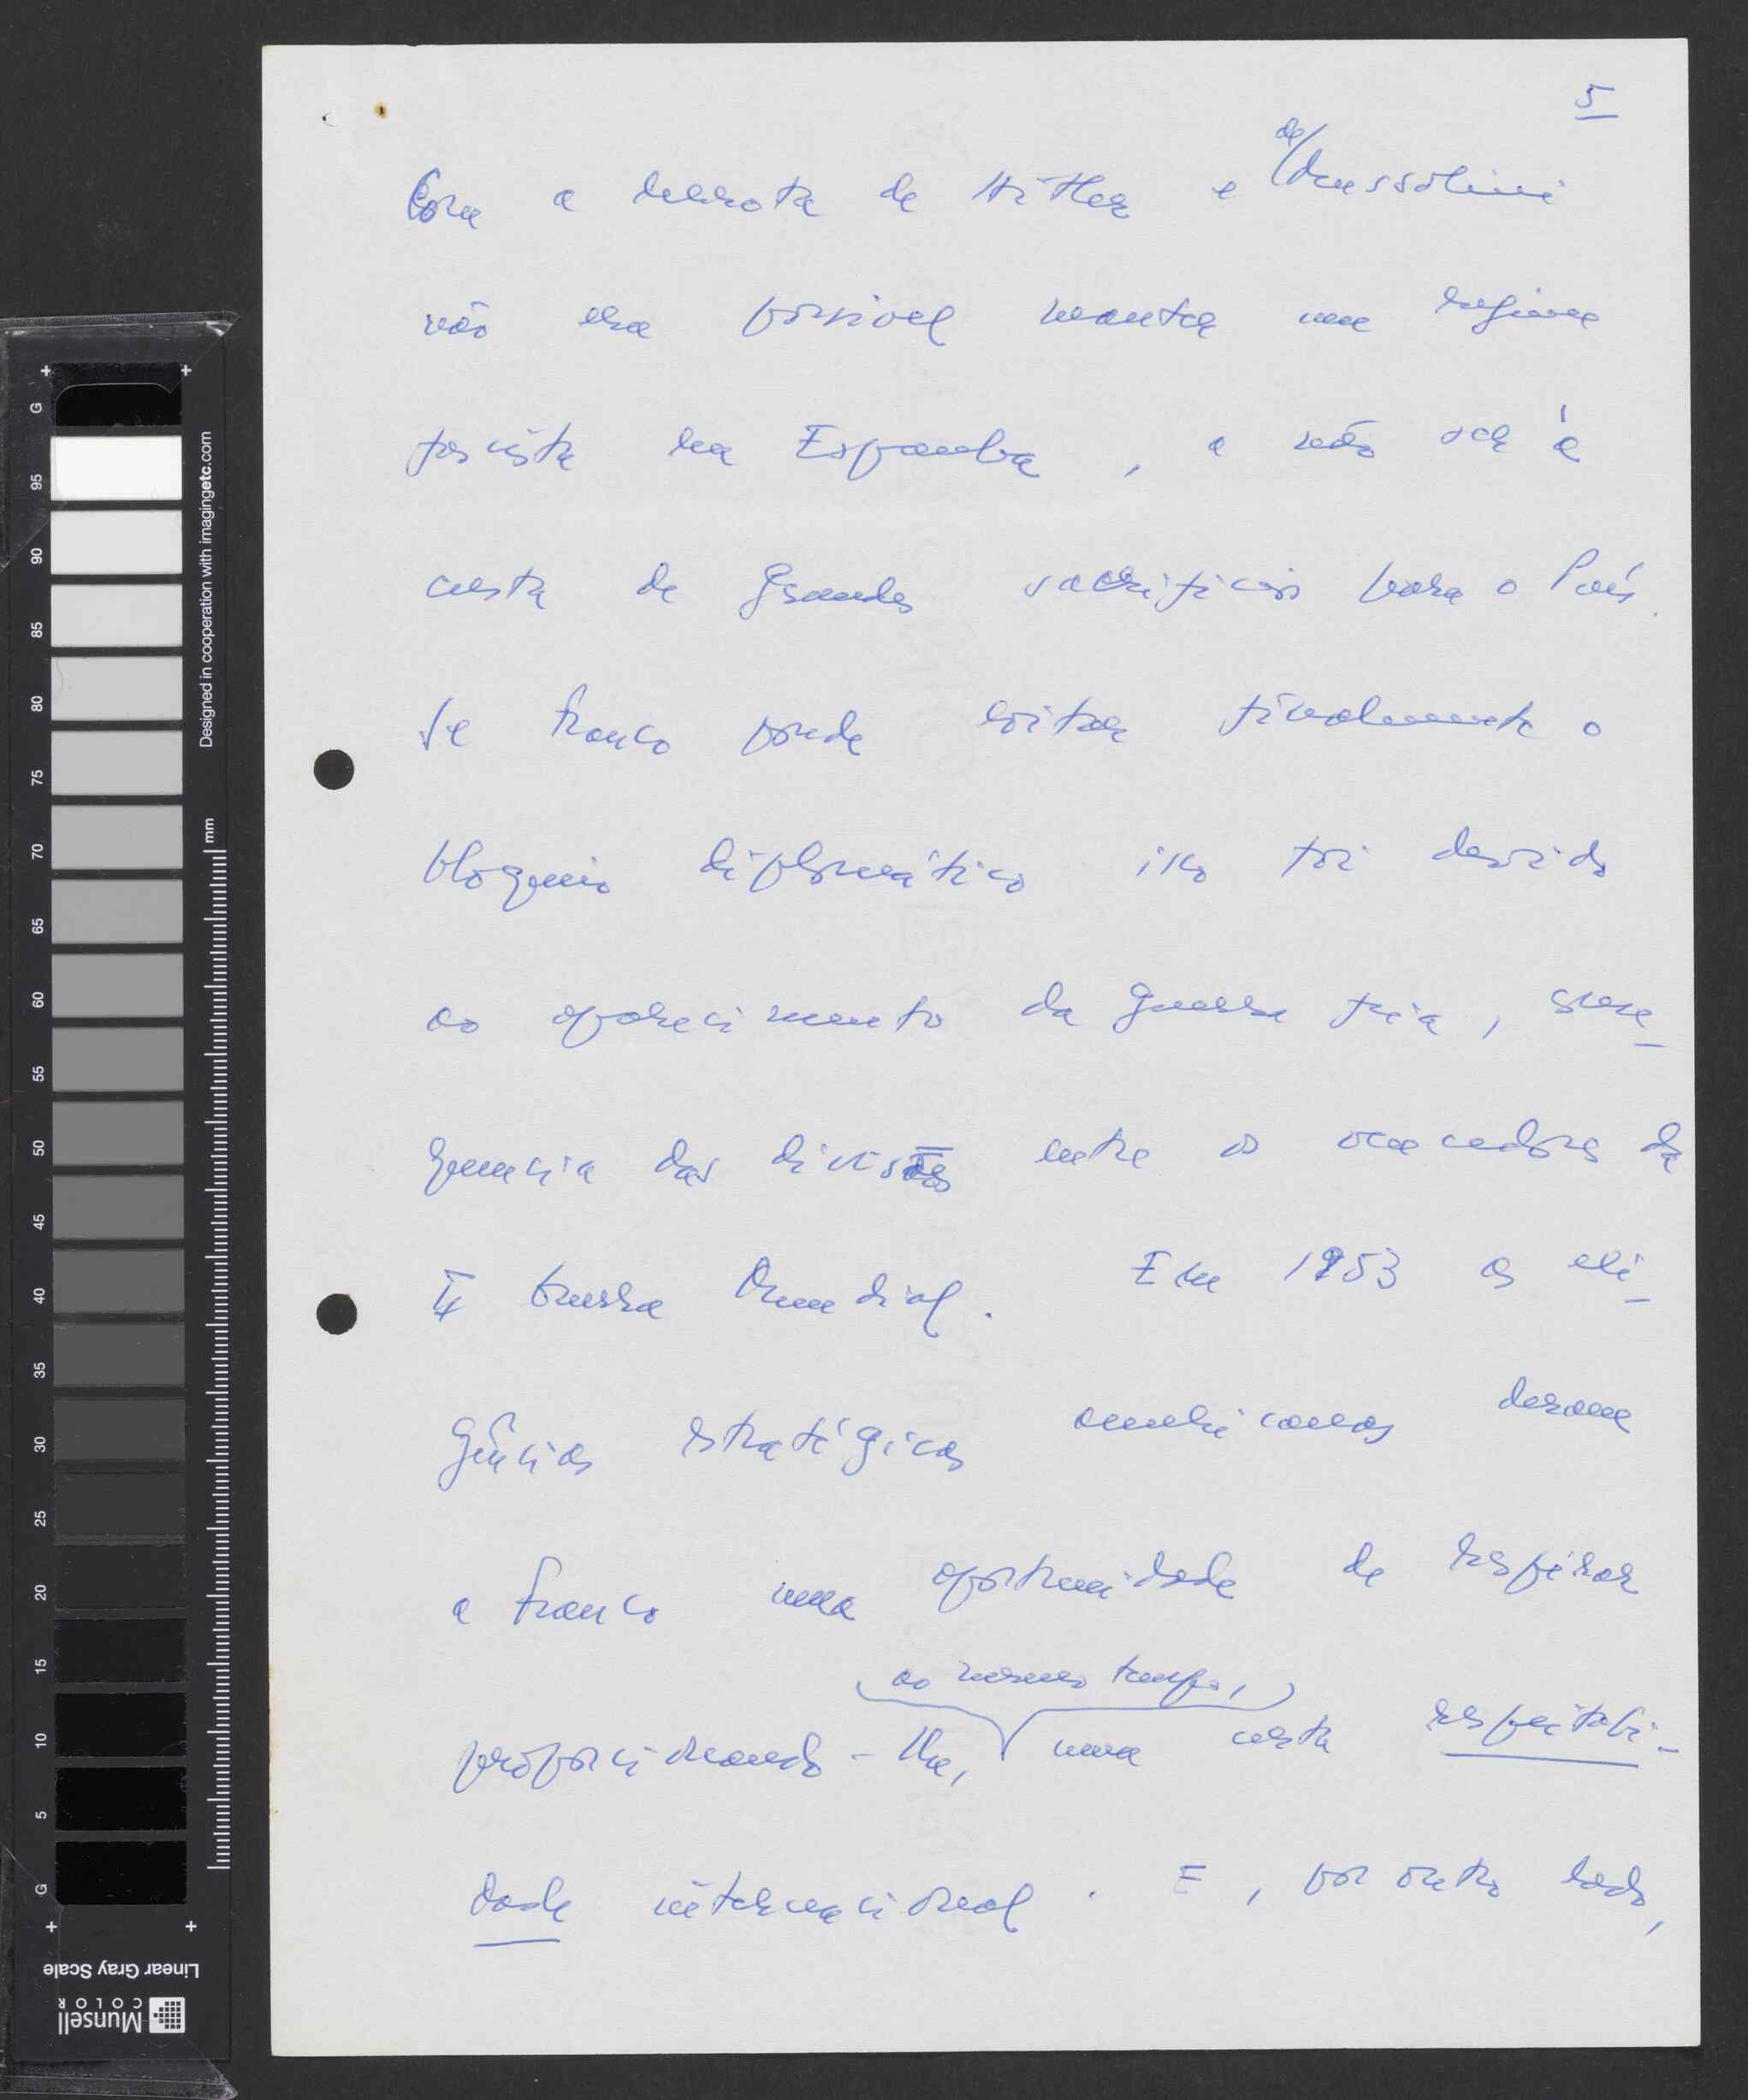 5
Com a derrota de Hitler e de/Mussolini
não era possivel manter um regime
fascista na Espanha, a não ser à
custa de grandes sacrificios para o País.
Se Franco poude evitar finalmente o
bloqueio diplomático isso foi devido
ao aparecimento da guerra fria, conse-
quencia das divisões entre os vencedores da
II Guerra Mundial. Em 1953 as exi-
gências estratégicas americanas deram
a Franco uma oportunidade de respirar
ao mesmo tempo,
proporcionando-lhe, uma certa respeitabi-
dade internacional. E, por outro lado,
G 95 90 85 80 75 70 65 60 55 50 45 40 35 30 25 20 15 10 5 G
mm
Designed in cooperation with imagingetc.com
Linear Gray Scale
Munsell
COLOR